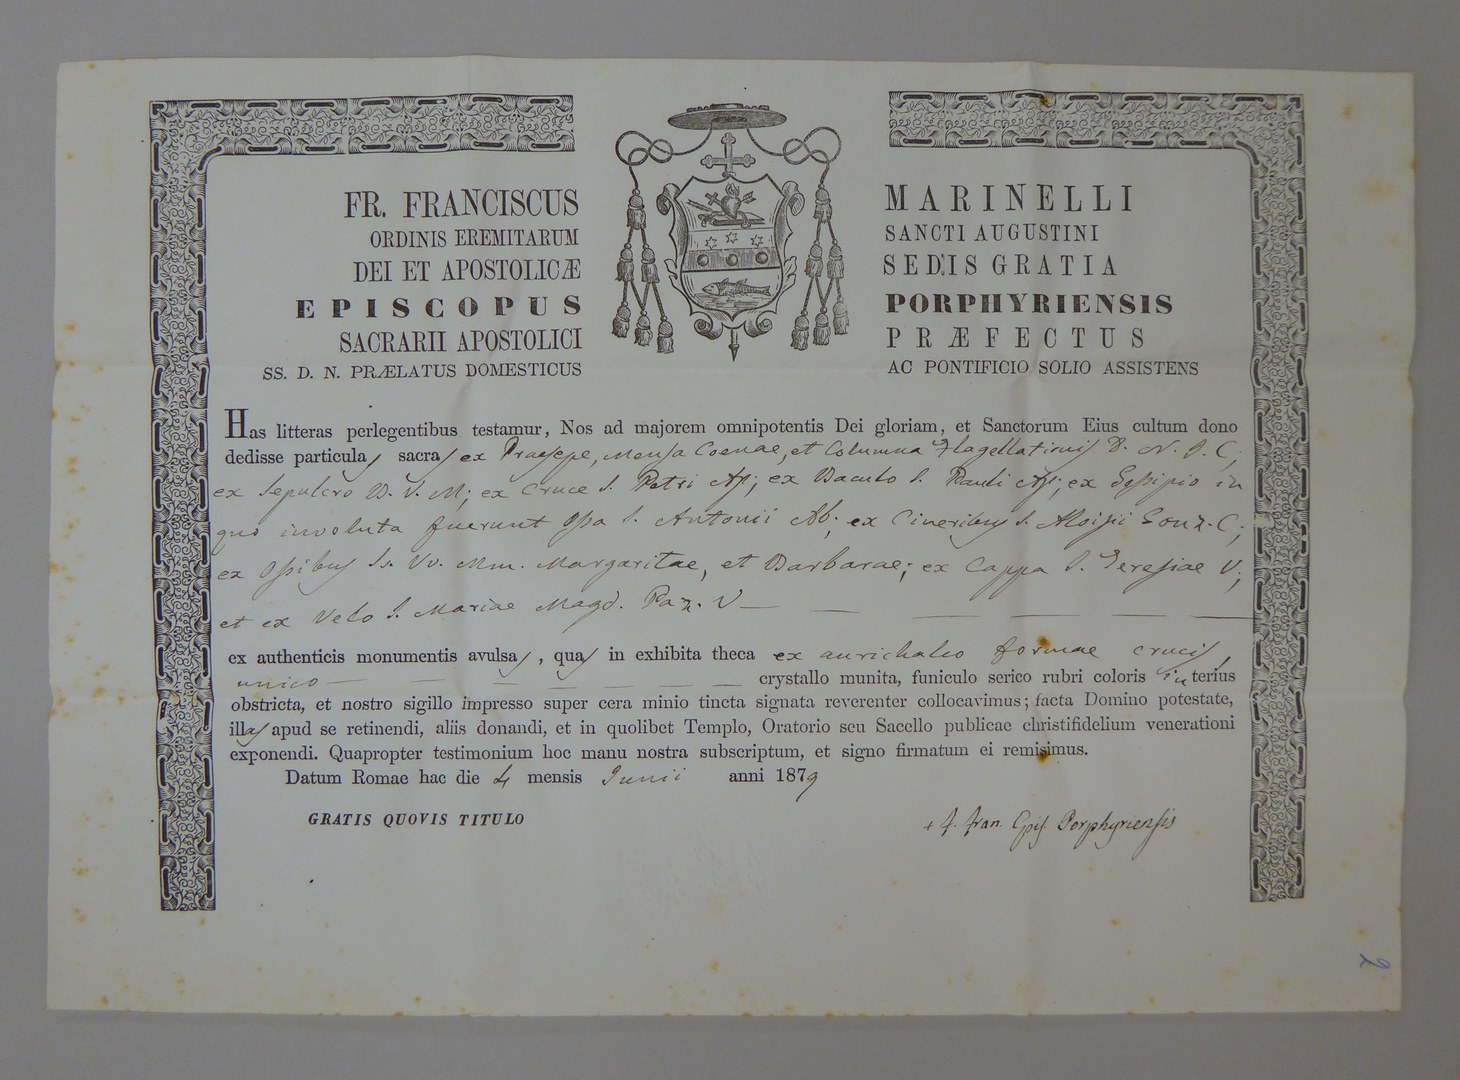 FR. FRANCISCUS MARINELLI
ORDINIS EREMITARUM SANCTI AUGUSTINI
DEI ET APOSTOLICÆ SEDIS GRATIA
EPISCOPUS PORPHYRIENSIS
SACRARII APOSTOLICI PRÆFECTUS
SS. D. N. PRÆLATUS DOMESTICUS AC PONTIFICIO SOLIO ASSISTENS
Has litteras perlegentibus testamur, Nos ad majorem omnipotentis Dei gloriam, et Sanctorum Eius cultum dono
dedisse particulas sacras ex Praesepe, Mensa Coenae, et Columna Flagellationis D. N. J. C;
ex Sepulcro B. V. M; ex Cruce S. Petri Ap; ex Baculo S. Pauli Ap; ex Gossipio in
quo involuta fuerunt ossa S. Antonii Ab; ex Cineribus S. Aloisii Gonz. C;
ex Ossibus Ss. Vv. Mm. Margaritae, et Barbarae; ex Cappa S. Teresiae V;
et ex Velo S. Mariae Magd. Paz. V
ex authenticis monumentis avulsas, quas in exhibita theca ex aurichalco formae crucis,
unico crystallo munita, funiculo serico rubri coloris interius
obstricta, et nostro sigillo impresso super cera minio tincta signata reverenter collocavimus; facta Domino potestate,
illas apud se retinendi, aliis donandi, et in quolibet Templo, Oratorio seu Sacello publicae christifidelium venerationi
exponendi. Quapropter testimonium hoc manu nostra subscriptum, et signo firmatum ei remisimus.
Datum Romae hac die 4 mensis Junii anni 1879
GRATIS QUOVIS TITULO
+ F. Fran. Epis. Porphyriensis
2